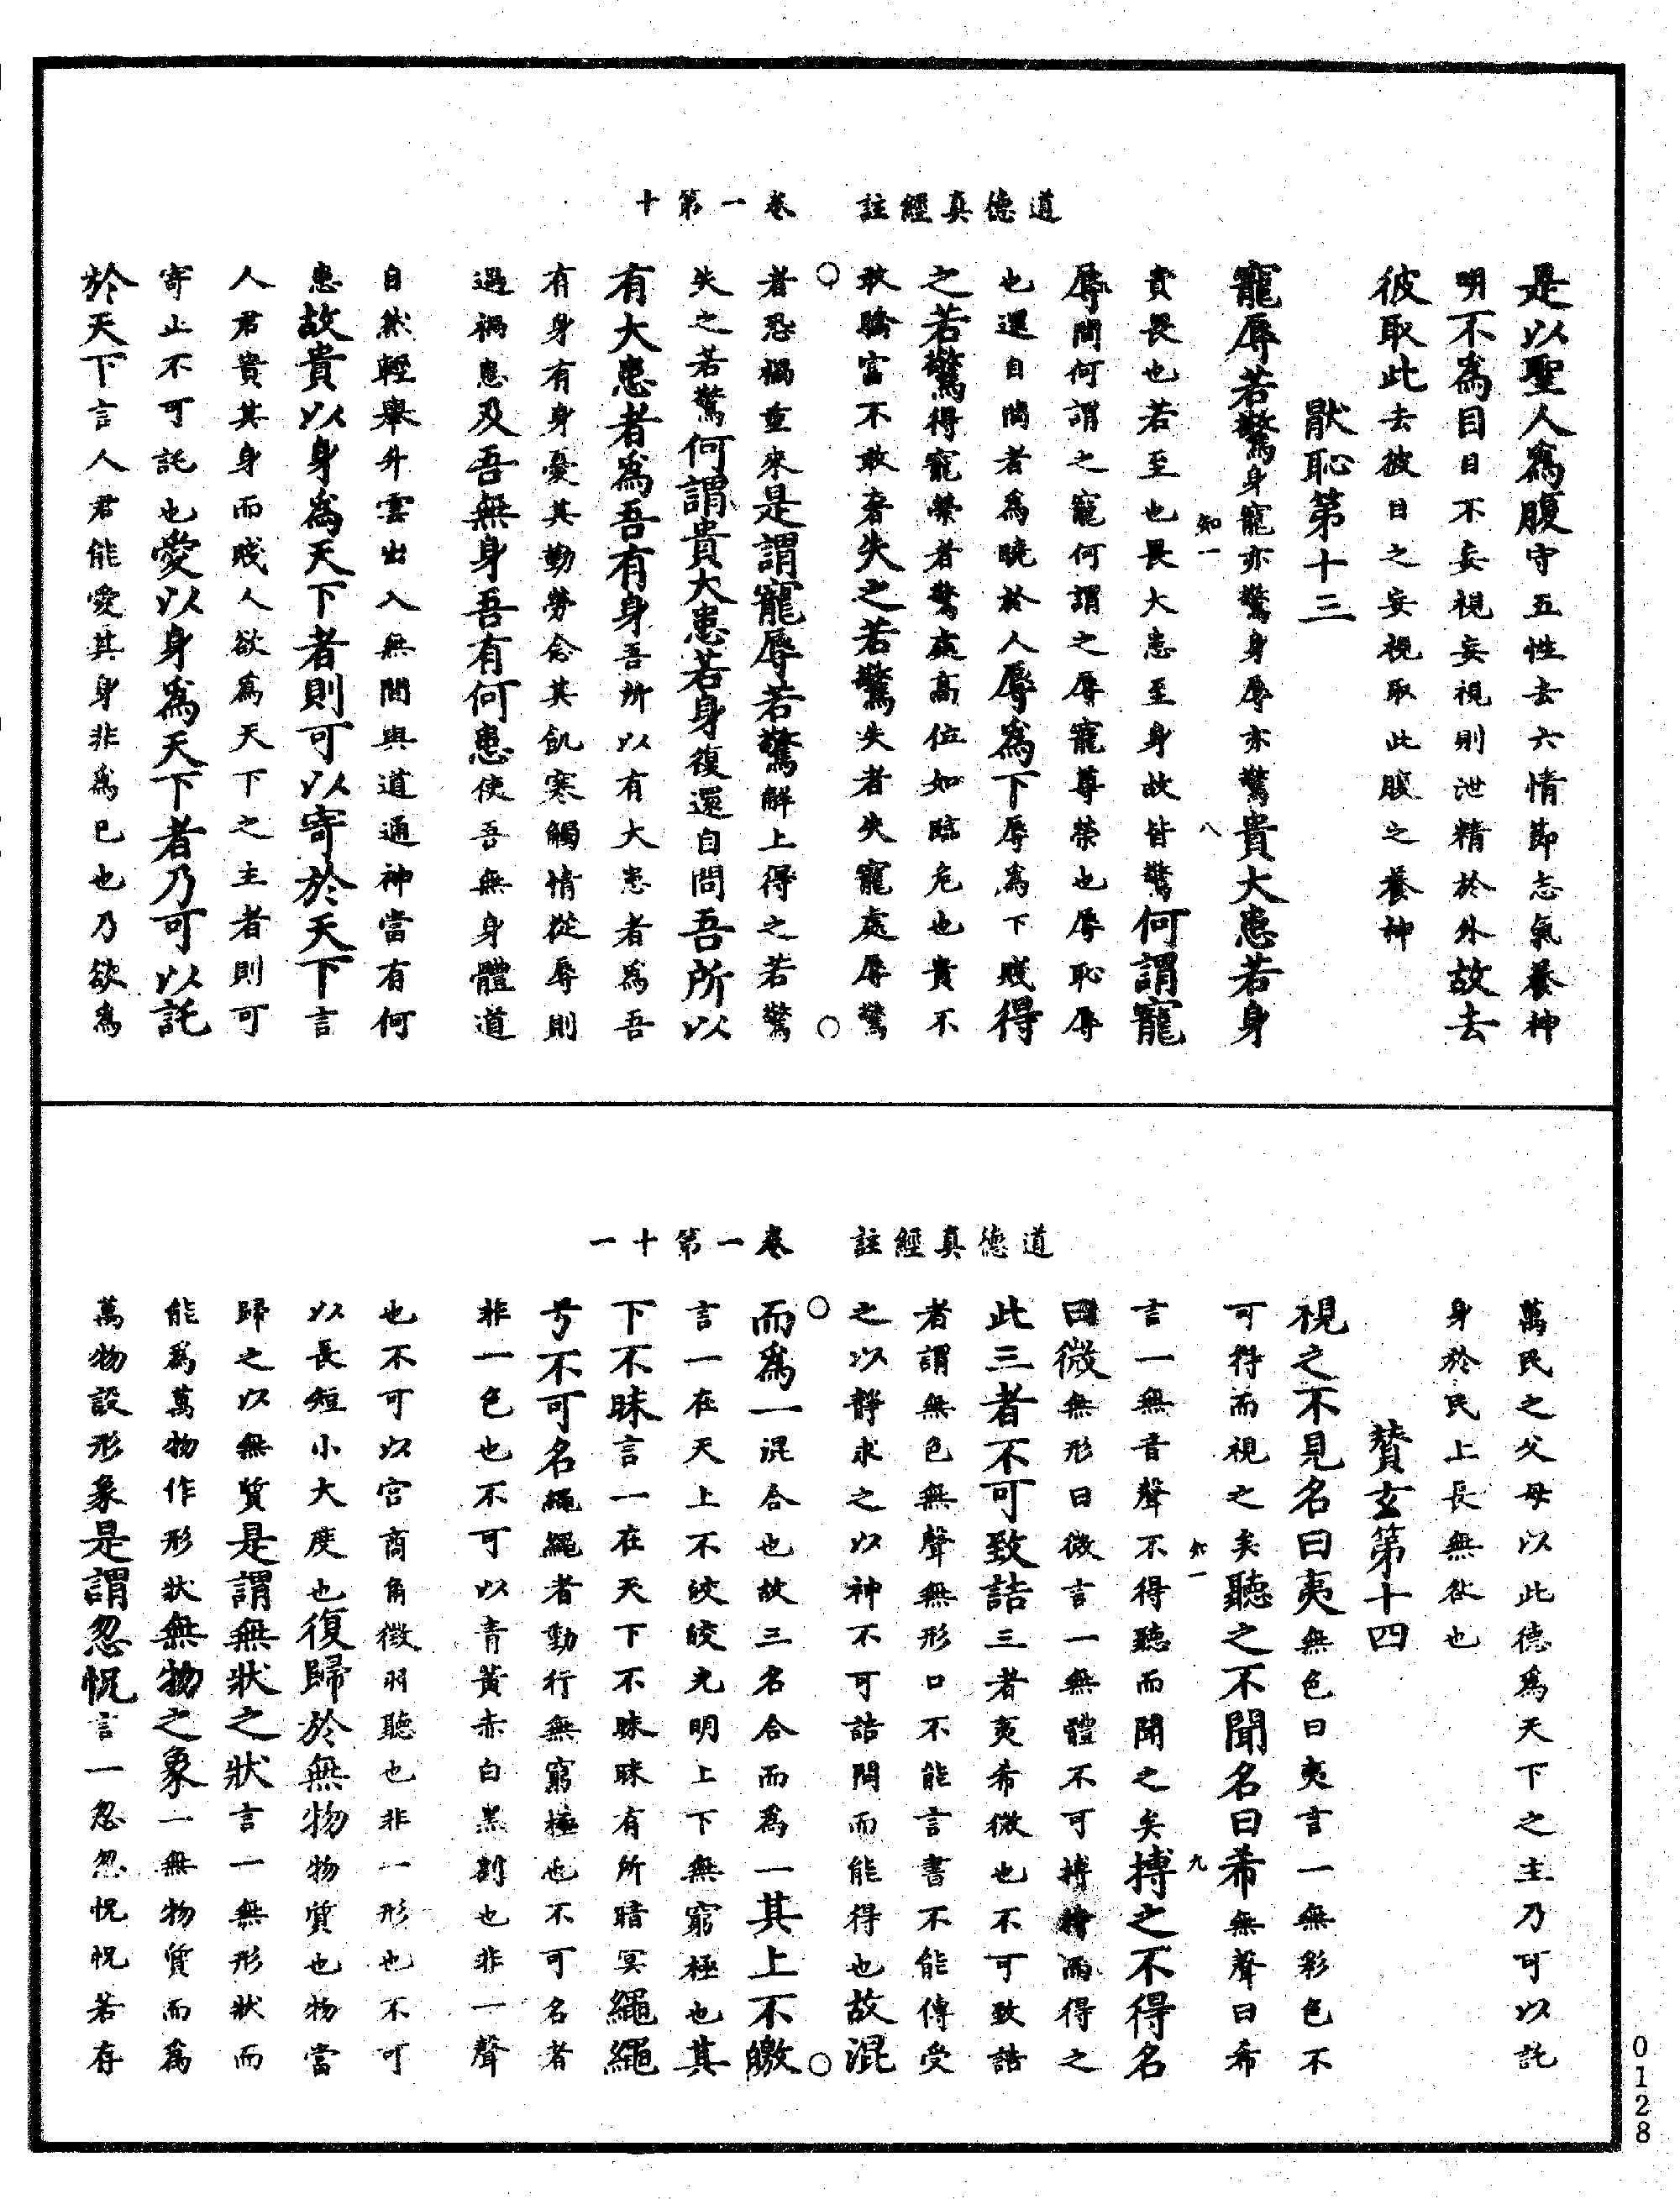 道德真經註　卷一第十
是以聖人爲腹守五性去六情節志氣養神
明不爲目目不妄視妄視則泄精於外故去
彼取此去彼目之妄視取此腹之養神
猒恥第十三
寵辱若驚身寵亦驚身辱亦驚貴大患若身
知一　八
貴畏也若至也畏大患至身故皆驚何謂寵
辱問何謂之寵何謂之辱寵尊榮也辱恥辱
也還自問者爲曉於人辱爲下辱爲下賤得
之若驚得寵榮者驚處高位如臨危也貴不
敢驕富不敢奢失之若驚失者失寵處辱驚
者恐禍重來是謂寵辱若驚解上得之若驚
失之若驚何謂貴大患若身復還自問吾所以
有大患者爲吾有身吾所以有大患者爲吾
有身有身憂其勤勞念其飢寒觸情從辱則
過禍患及吾無身吾有何患使吾無身體道
自然輕舉升雲出入無間與道通神當有何
患故貴以身爲天下者則可以寄於天下言
人君貴其身而賤人欲爲天下之主者則可
寄止不可託也愛以身爲天下者乃可以託
於天下言人君能愛其身非爲已也乃欲爲
道德真經註　卷一第十一
萬民之父母以此德爲天下之主乃可以託
身於民上長無咎也
贊玄第十四
視之不見名曰夷無色曰夷言一無彩色不
可得而視之矣聽之不聞名曰希無聲曰希
知一　九
言一無音聲不得聽而聞之矣搏之不得名
曰微無形曰微言一無體不可摶持而得之
此三者不可致詰三者夷希微也不可致詰
者謂無色無聲無形口不能言書不能傳受
之以靜求之以神不可詰問而能得也故混
而爲一混合也故三名合而爲一其上不皦
言一在天上不皎皎光明上下無窮極也其
下不昧言一在天下不昧昧有所暗冥繩繩
兮不可名繩繩者動行無窮極也不可名者
非一色也不可以青黃赤白黑別也非一聲
也不可以宮商角徵羽聽也非一形也不可
以長短小大度也復歸於無物物質也物當
歸之以無質是謂無狀之狀言一無形狀而
能爲萬物作形狀無物之象一無物質而爲
萬物設形象是謂忽怳言一忽忽怳怳若存
0128